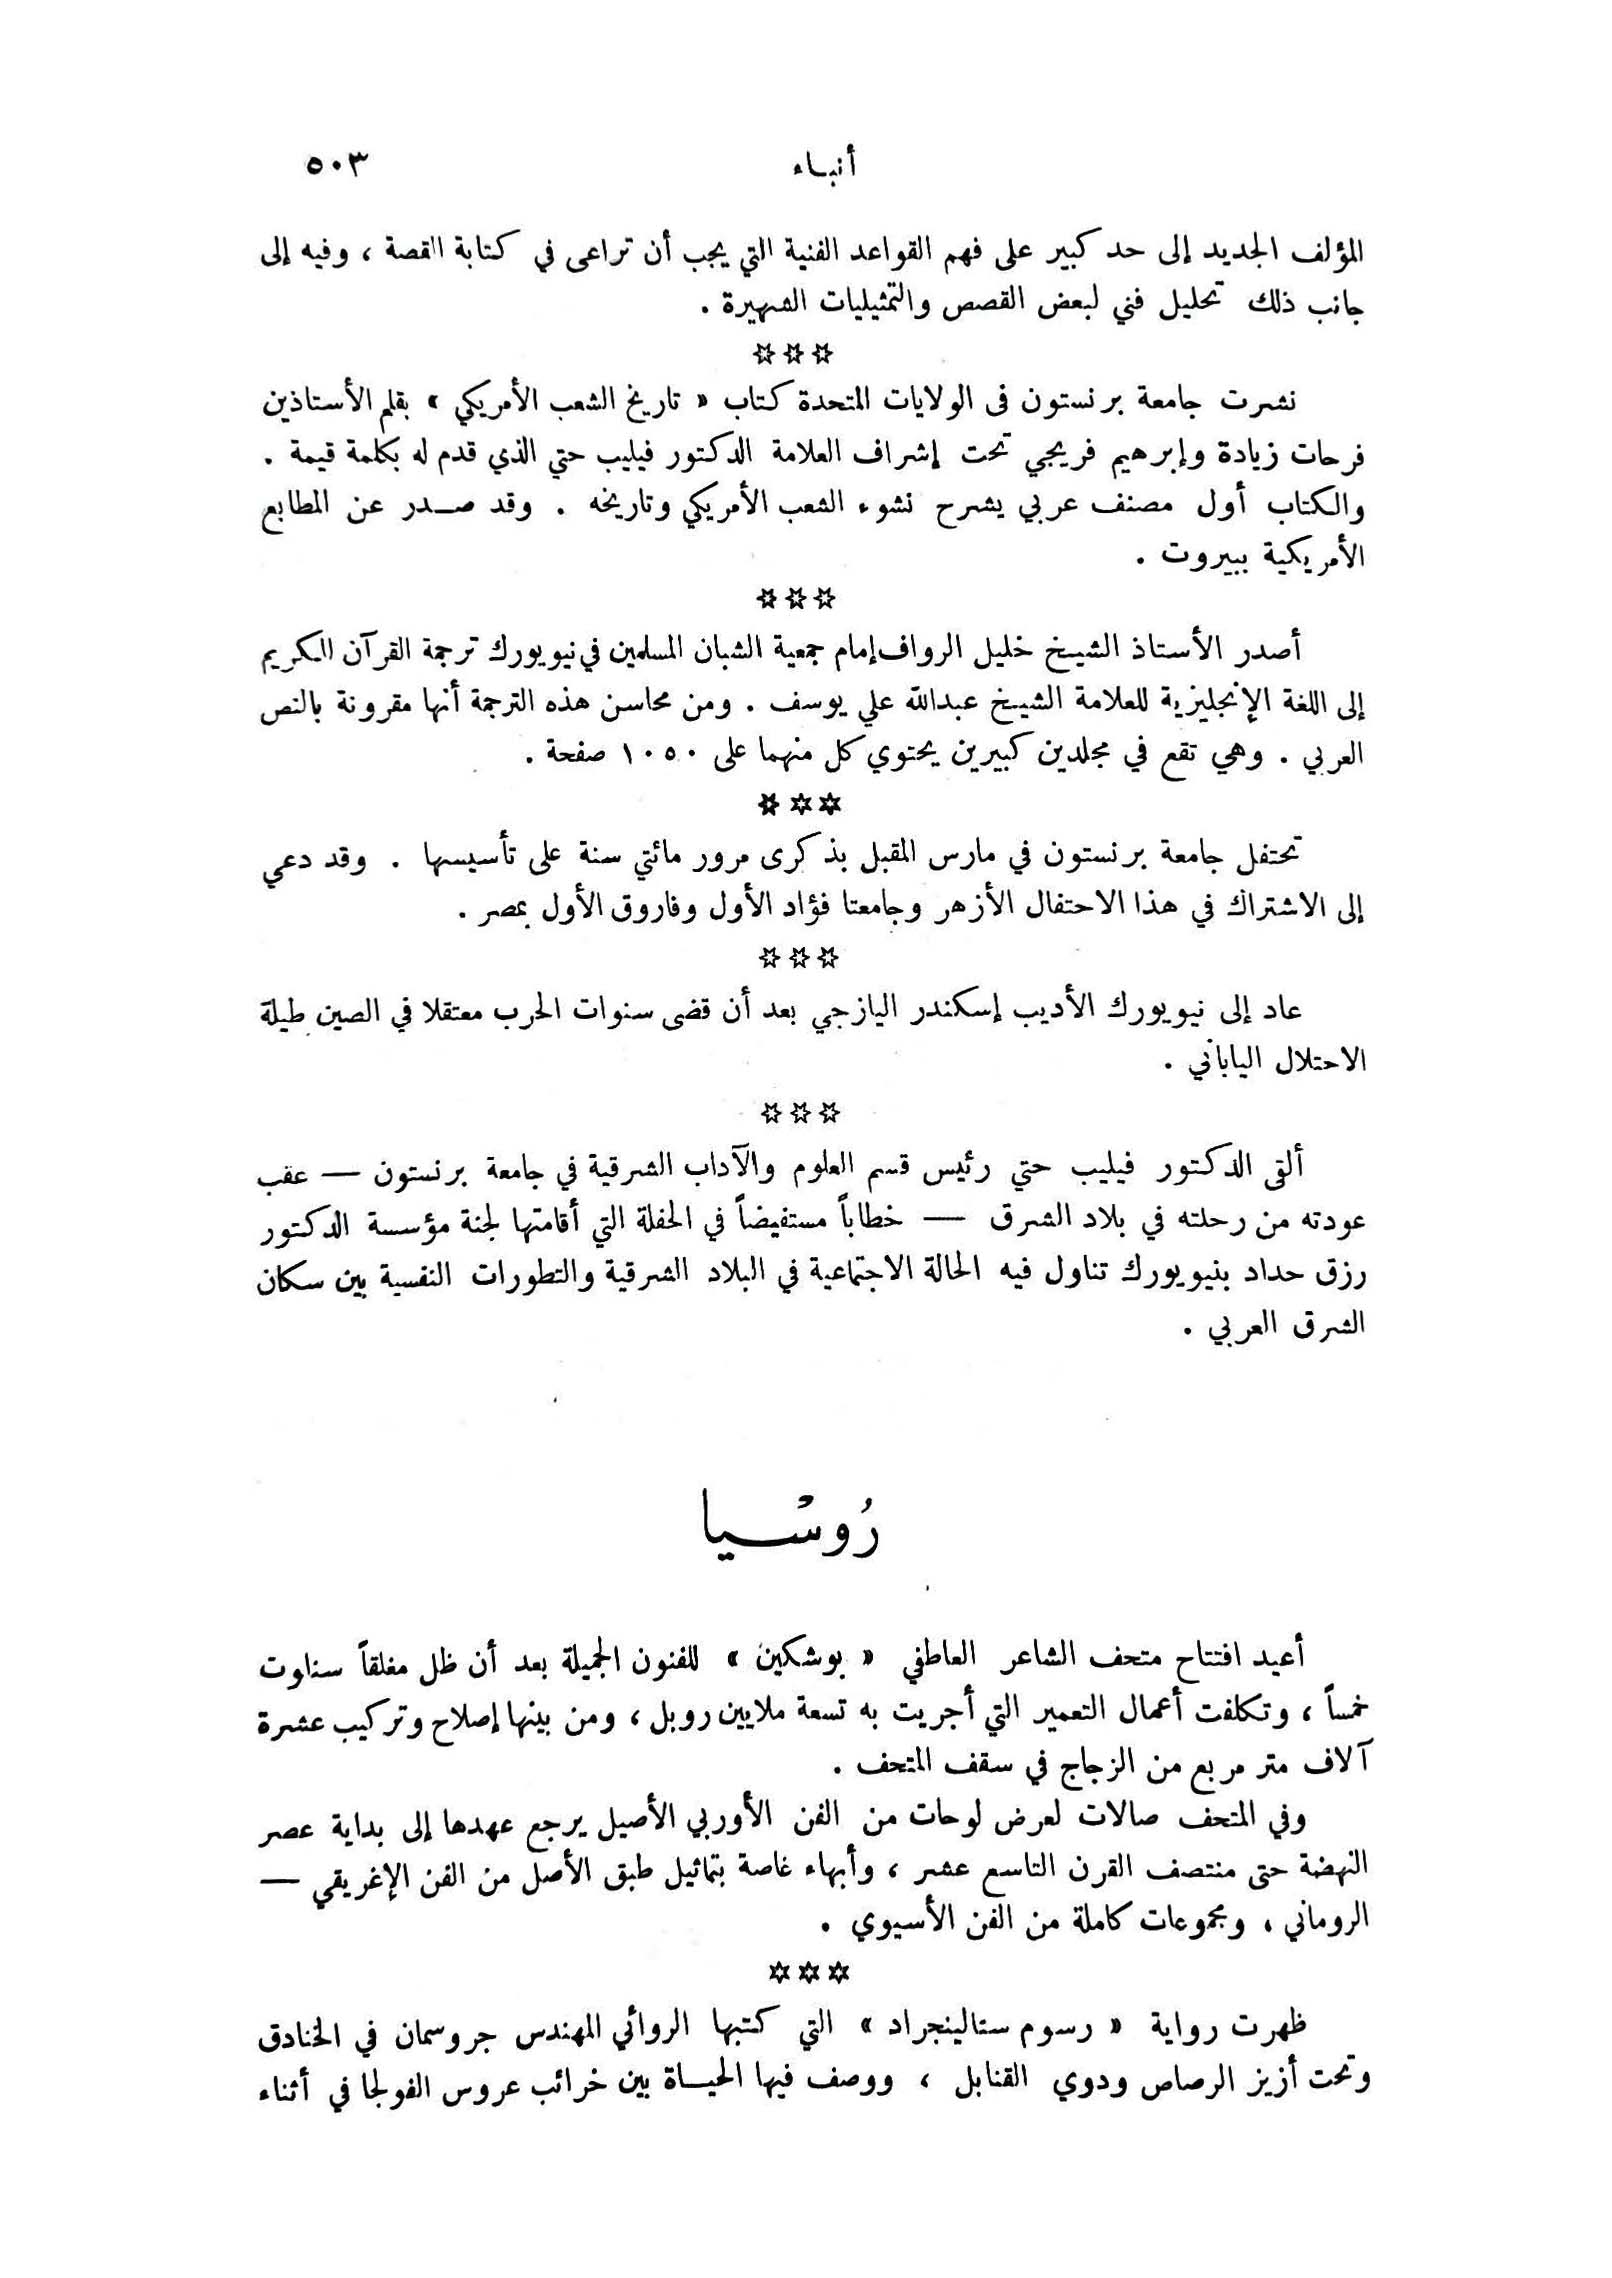 أنباء ٥٠٣
المؤلف الجديد إلى حد كبير على فهم القواعد الفنية التي يجب أن تراعى في كتابة القصة ، وفيه إلى
جانب ذلك تحليل فني لبعض القصص والتمثيليات الشهيرة .
***
نشرت جامعة برنستون فى الولايات المتحدة كتاب « تاريخ الشعب الأمريكي » بقلم الأستاذين
فرحات زيادة وإبرهيم فريجي تحت إشراف العلامة الدكتور فيليب حتي الذي قدم له بكلمة قيمة .
والكتاب أول مصنف عربي يشرح نشوء الشعب الأمريكي وتاريخه . وقد صدر عن المطابع
الأمريكية ببيروت .
***
أصدر الأستاذ الشيخ خليل الرواف إمام جمعية الشبان المسلمين في نيويورك ترجمة القرآن الكريم
إلى اللغة الإنجليزية للعلامة الشيخ عبدالله علي يوسف . ومن محاسن هذه الترجمة أنها مقرونة بالنص
العربي . وهي تقع في مجلدين كبيرين يحتوي كل منهما على ١٠٥٠ صفحة .
***
تحتفل جامعة برنستون في مارس المقبل بذكرى مرور مائتي سنة على تأسيسها . وقد دعي
إلى الاشتراك في هذا الاحتفال الأزهر وجامعتا فؤاد الأول وفاروق الأول بمصر .
***
عاد إلى نيويورك الأديب إسكندر اليازجي بعد أن قضى سنوات الحرب معتقلا في الصين طيلة
الاحتلال الياباني .
***
ألقى الدكتور فيليب حتي رئيس قسم العلوم والآداب الشرقية في جامعة برنستون — عقب
عودته من رحلته في بلاد الشرق — خطاباً مستفيضاً في الحفلة التي أقامتها لجنة مؤسسة الدكتور
رزق حداد بنيويورك تناول فيه الحالة الاجتماعية في البلاد الشرقية والتطورات النفسية بين سكان
الشرق العربي .
رُوسْيا
أعيد افتتاح متحف الشاعر العاطفي « بوشكين » للفنون الجميلة بعد أن ظل مغلقاً سناوت
خمساً ، وتكلفت أعمال التعمير التي أجريت به تسعة ملايين روبل ، ومن بينها إصلاح وتركيب عشرة
آلاف متر مربع من الزجاج في سقف المتحف .
وفي المتحف صالات لعرض لوحات من الفن الأوربي الأصيل يرجع عهدها إلى بداية عصر
النهضة حتى منتصف القرن التاسع عشر ، وأبهاء غاصة بتماثيل طبق الأصل من الفن الإغريقي —
الروماني ، ومجموعات كاملة من الفن الأسيوي .
***
ظهرت رواية « رسوم ستالينجراد » التي كتبها الروائي المهندس جروسمان في الخنادق
وتحت أزيز الرصاص ودوي القنابل ، ووصف فيها الحياة بين خرائب عروس الفولجا في أثناء